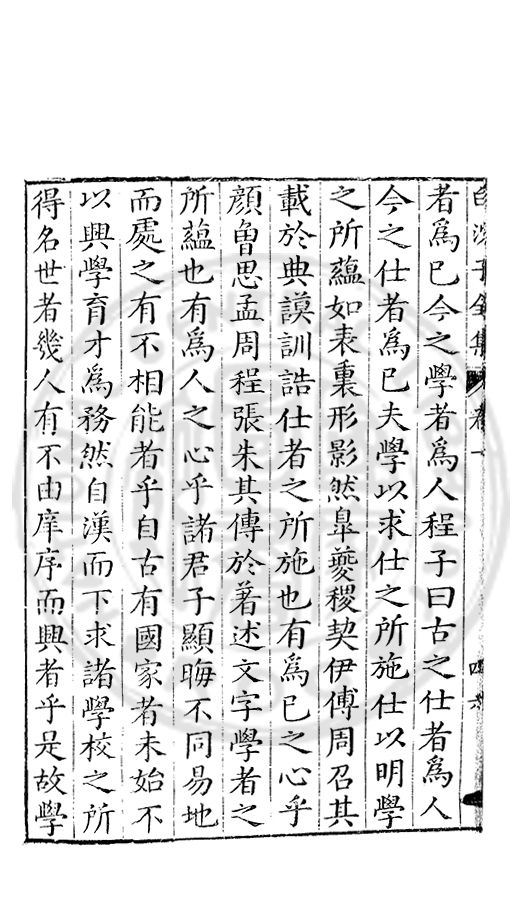 白沙子全集 卷一 四
者爲己今之學者爲人程子曰古之仕者爲人
今之仕者爲己夫學以求仕之所施仕以明學
之所蘊如表裏形影然臯夔稷契伊傅周召其
載於典謨訓誥仕者之所施也有爲己之心乎
顏曾思孟周程張朱其傳於著述文字學者之
所蘊也有爲人之心乎諸君子顯晦不同易地
而處之有不相能者乎自古有國家者未始不
以興學育才爲務然自漢而下求諸學校之所
得名世者幾人有不由庠序而興者乎是故學